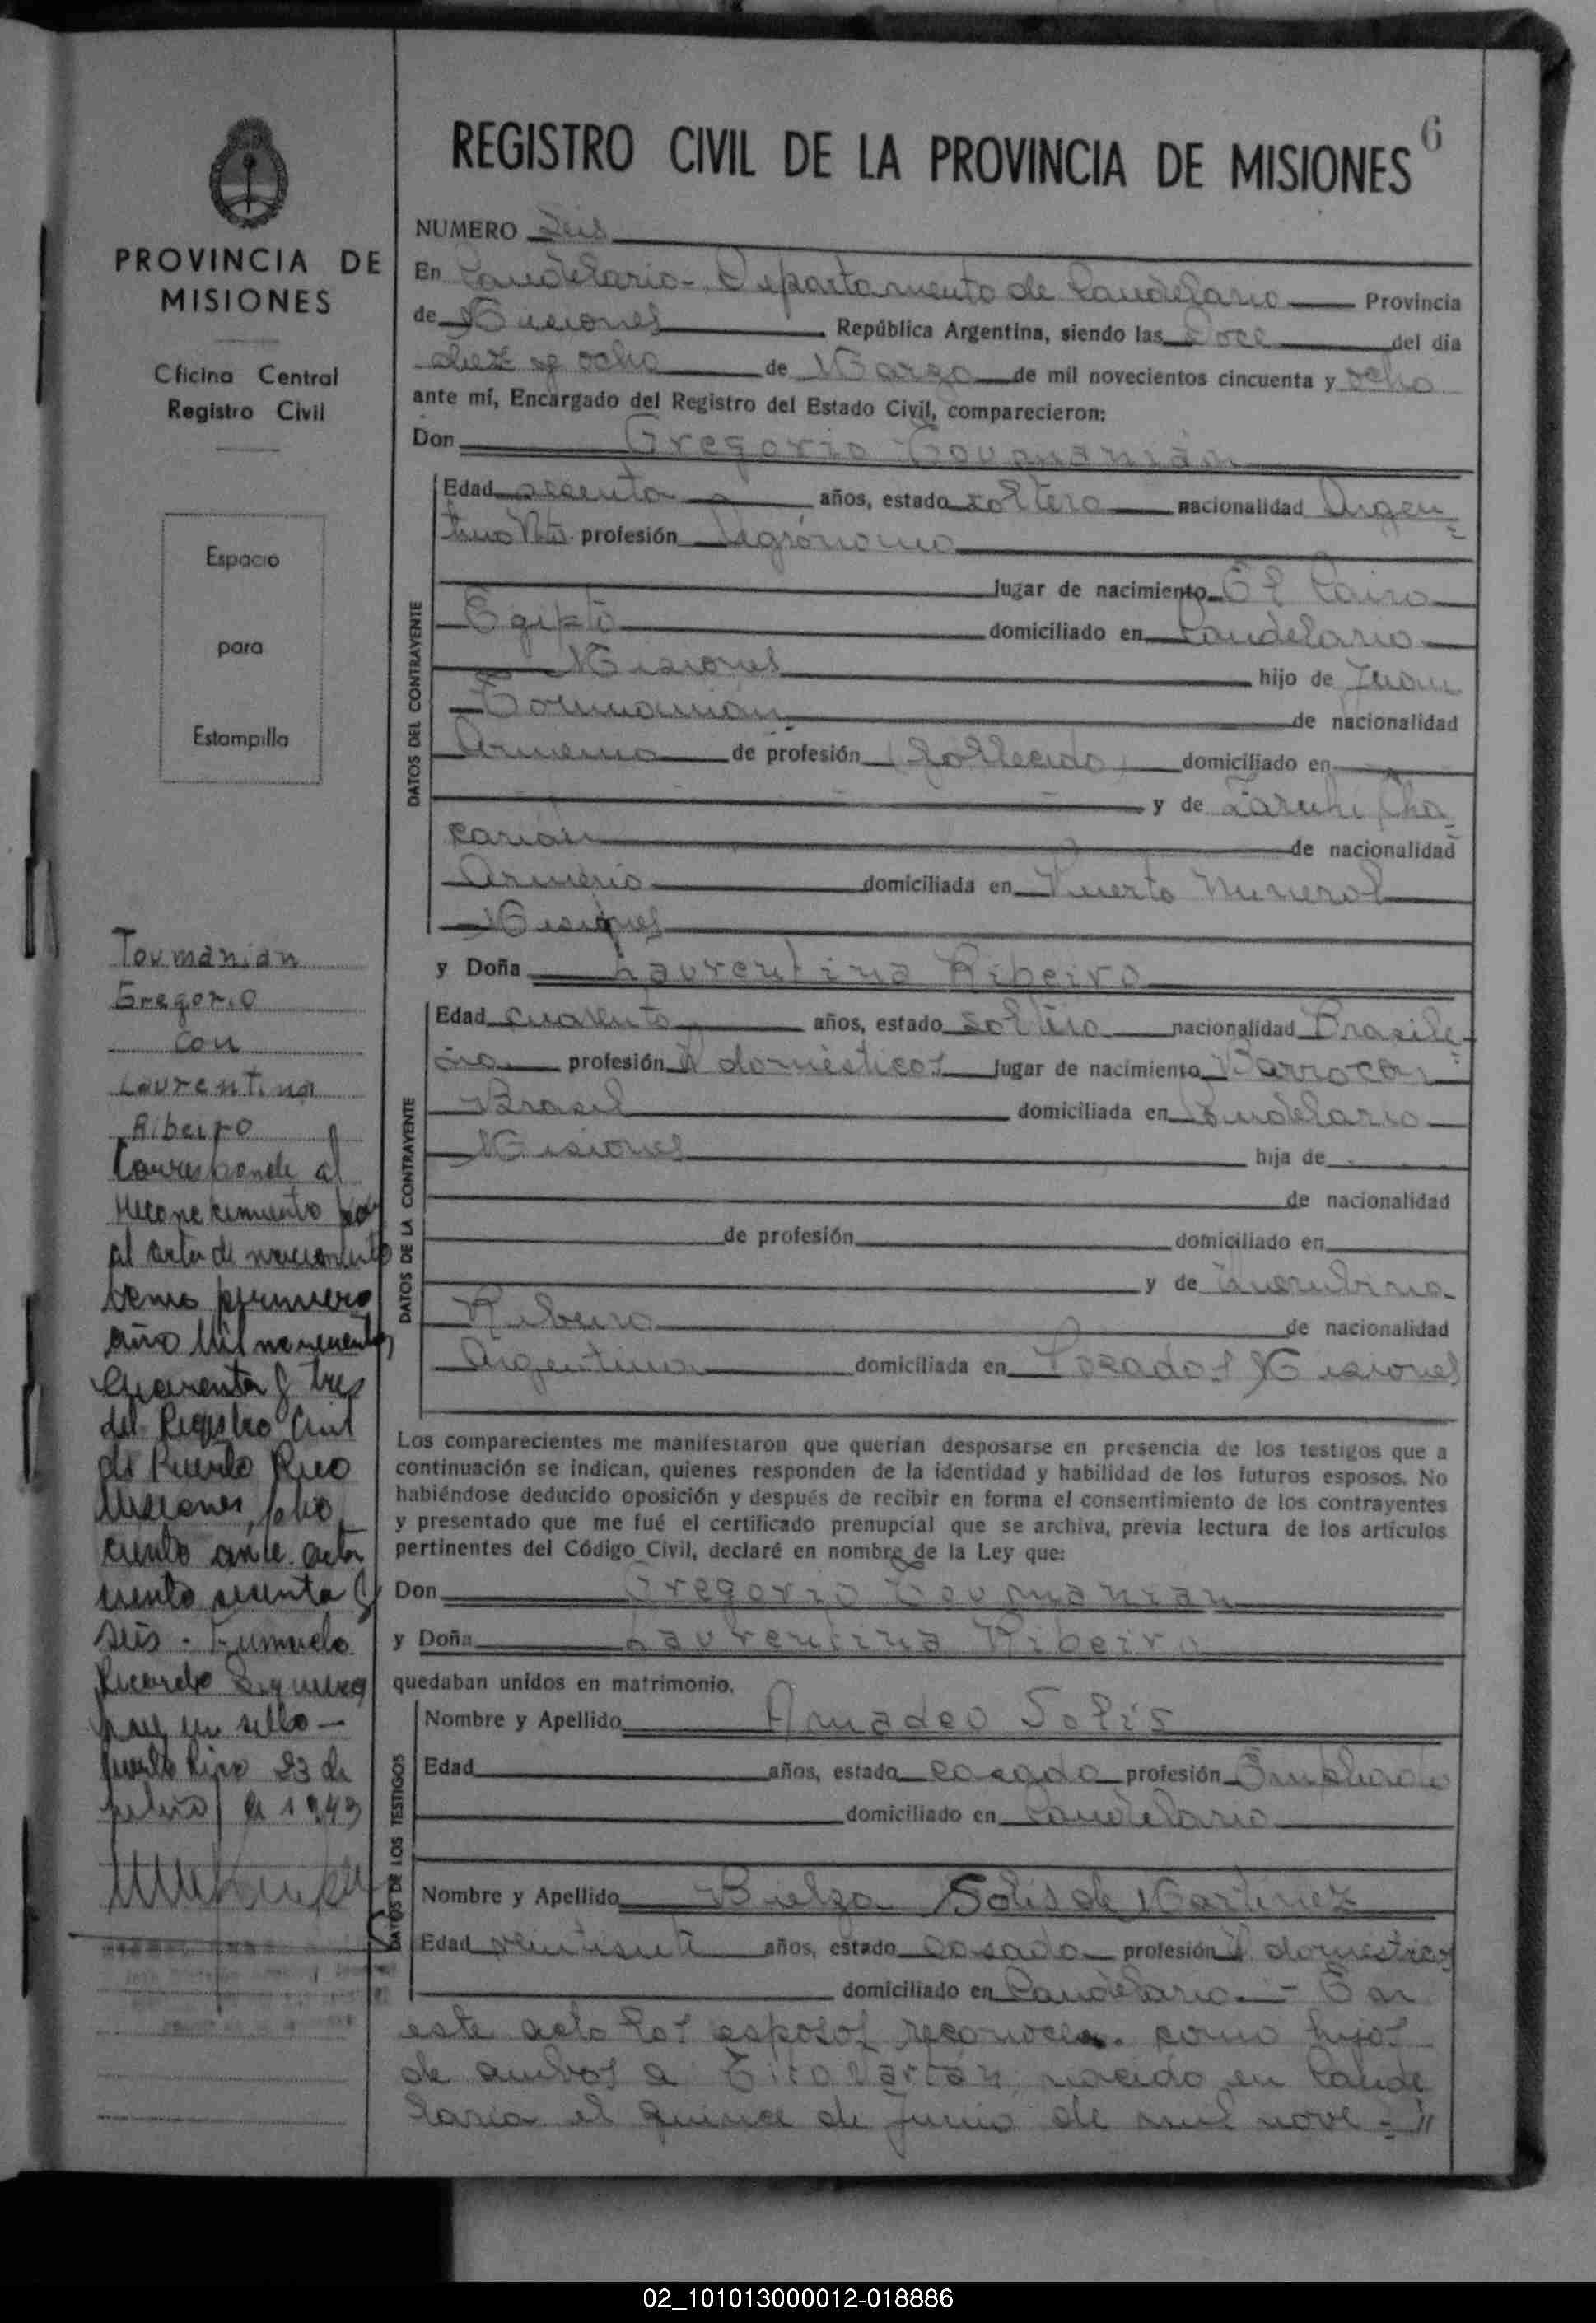 6
REGISTRO CIVIL DE LA PROVINCIA DE MISIONES
PROVINCIA DE
MISIONES
Oficina Central
Registro Civil
Espacio
para
Estampilla
Toumanian
Gregorio
con
Laurentina
Ribeiro
Corresponde al
reconocimiento
al acta de nacimiento
primero
año mil novecientos
cuarenta y tres
del Registro Civil
de Puerto Rico
Misiones, folio
ciento ante acta
ciento sesenta y
seis. Firmado
Ricardo
hay un sello —
Puerto Rico 23 de
de 1943
NUMERO Seis
En Candelaria - Departamento de Candelaria Provincia
de Misiones República Argentina, siendo las doce del día
diez y ocho de Marzo de mil novecientos cincuenta y ocho
ante mí, Encargado del Registro del Estado Civil, comparecieron:
Don Gregorio Toumanián
DATOS DEL CONTRAYENTE
Edad sesenta años, estado soltero nacionalidad Argen-
tino Nto. profesión Agrónomo
lugar de nacimiento El Cairo
Egipto domiciliado en Candelaria
Misiones hijo de Juan
Toumanián de nacionalidad
Armenia de profesión (fallecido) domiciliado en
y de Zaruhi Cha-
carián de nacionalidad
Armenia domiciliada en Puerto Mineral
Misiones
y Doña Laurentina Ribeiro
DATOS DE LA CONTRAYENTE
Edad cuarenta años, estado soltera nacionalidad Brasile-
ña profesión Q domésticos lugar de nacimiento Barrocas
Brasil domiciliada en Candelaria
Misiones hija de
de nacionalidad
de profesión domiciliado en
y de Querubina
Ribeiro de nacionalidad
Argentina domiciliada en Posadas Misiones
Los comparecientes me manifestaron que querían desposarse en presencia de los testigos que a
continuación se indican, quienes responden de la identidad y habilidad de los futuros esposos. No
habiéndose deducido oposición y después de recibir en forma el consentimiento de los contrayentes
y presentado que me fué el certificado prenupcial que se archiva, previa lectura de los artículos
pertinentes del Código Civil, declaré en nombre de la Ley que:
Don Gregorio Toumanián
y Doña Laurentina Ribeiro
quedaban unidos en matrimonio.
DATOS DE LOS TESTIGOS
Nombre y Apellido Amadeo Solís
Edad años, estado casado profesión Empleado
domiciliado en Candelaria
Nombre y Apellido Solis de Martinez
Edad veintisiete años, estado casada profesión Q domésticos
domiciliado en Candelaria. - En
este acto los esposos reconocen como hijos
de ambos a Tito Vartán, nacido en Cande
laria el quince de Junio de mil nove-//
02_101013000012-018886